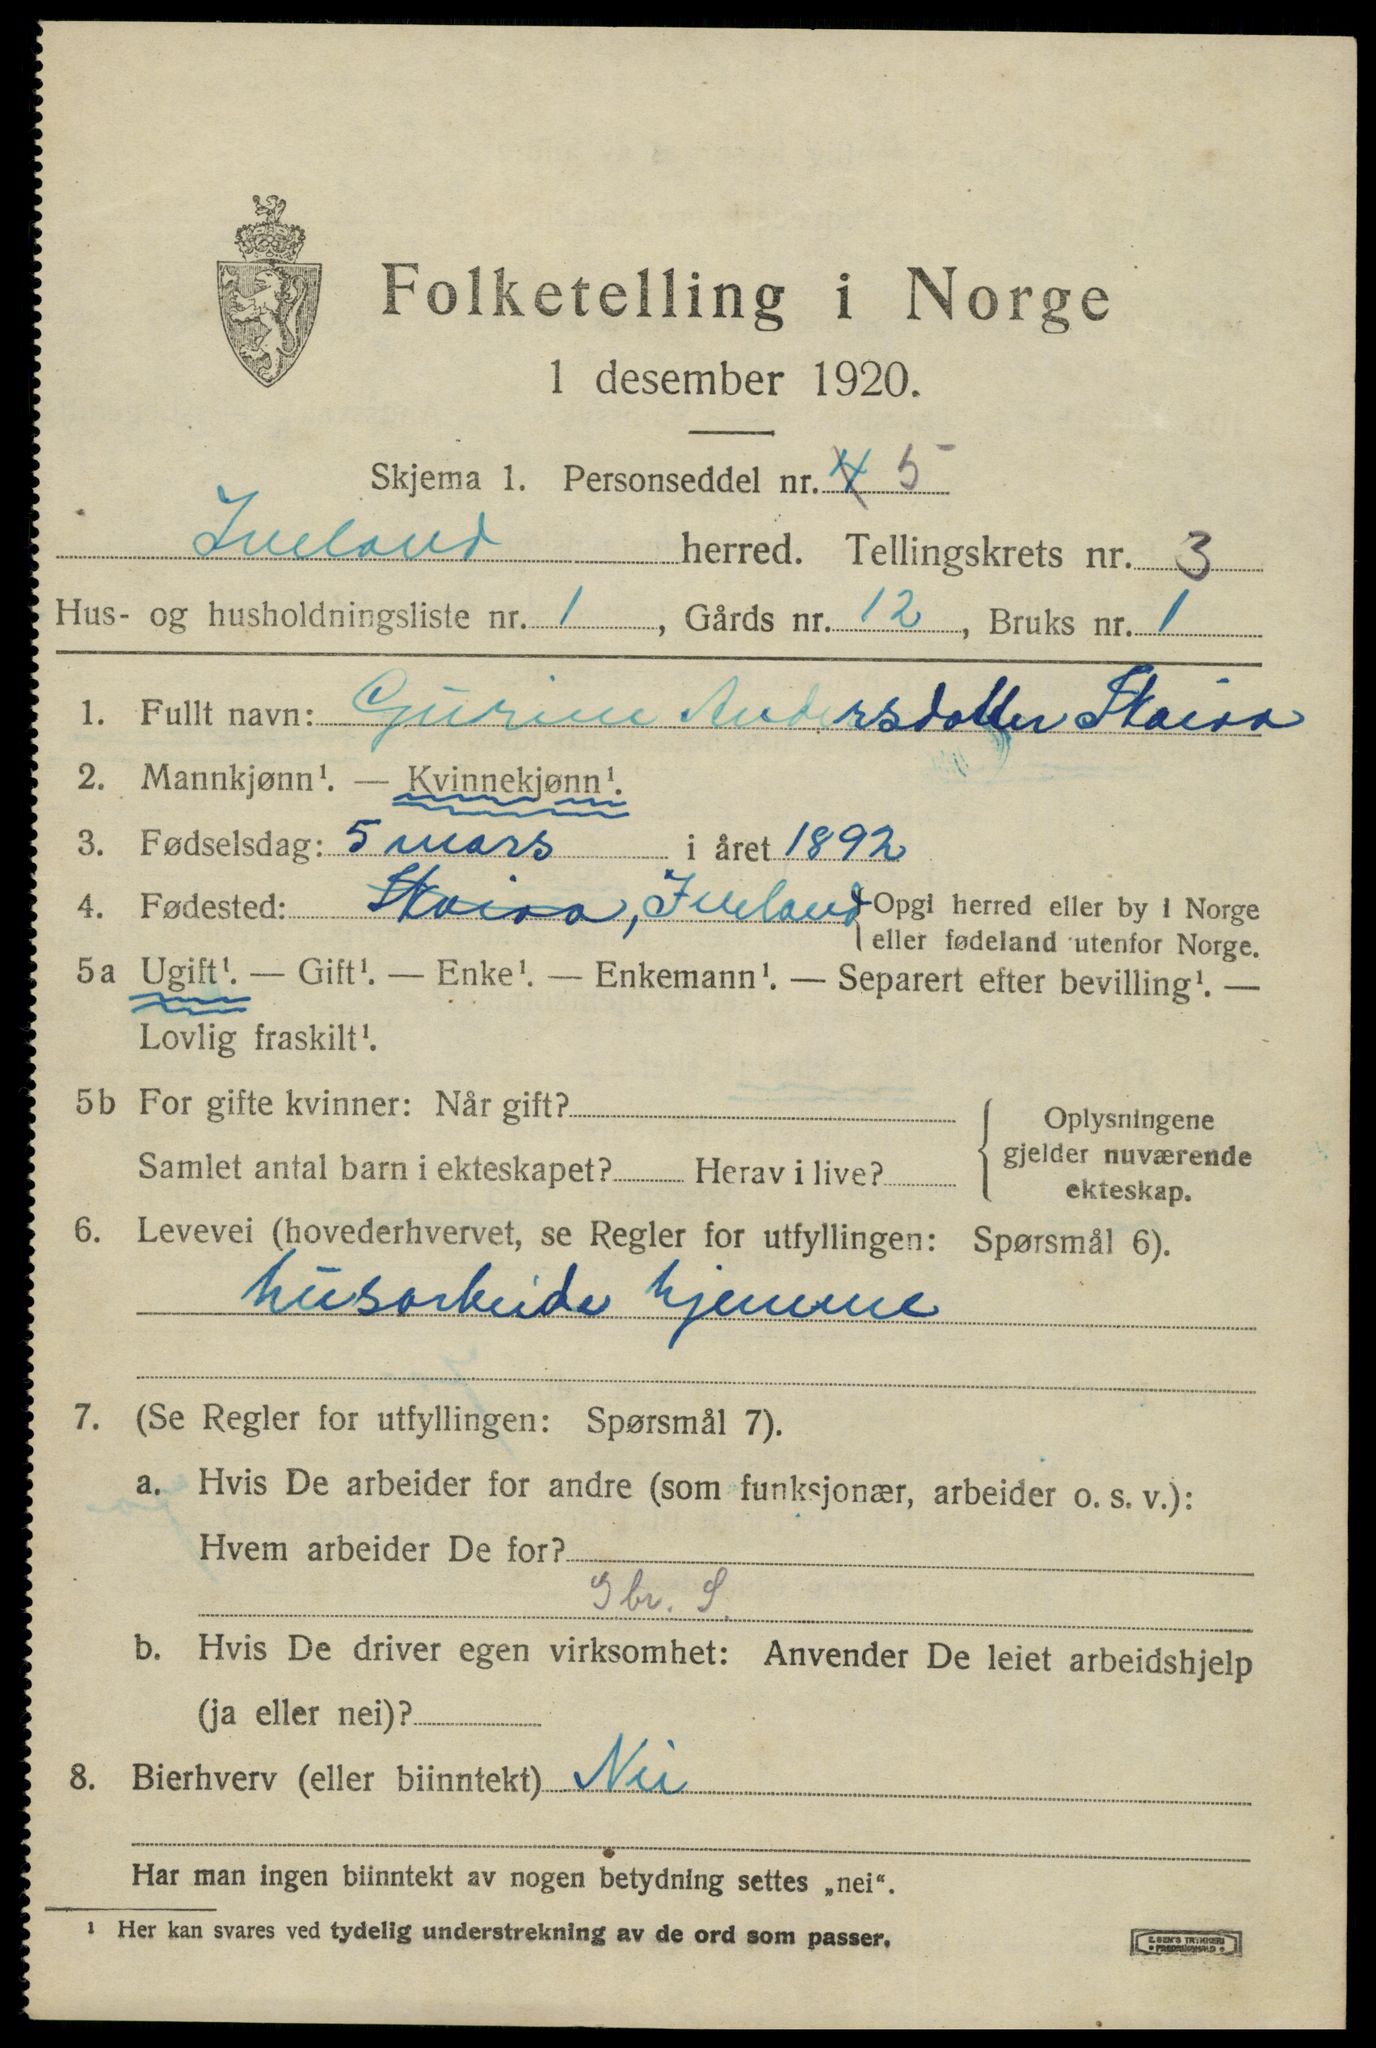 Folketelling i Norge
1 desember 1920.
Skjema 1. Personseddel nr. 4 5
Iveland herred. Tellingskrets nr. 3
Hus- og husholdningsliste nr. 1, Gårds nr. 12, Bruks nr. 1
1. Fullt navn: Gurine Andersdatter Skaiaa
2. Mannkjønn¹. — Kvinnekjønn¹.
3. Fødselsdag: 5 mars i året 1892
4. Fødested: Skaiaa, Iveland Opgi herred eller by i Norge
eller fødeland utenfor Norge.
5a Ugift¹. — Gift¹. — Enke¹. — Enkemann¹. — Separert efter bevilling¹. —
Lovlig fraskilt¹.
5b For gifte kvinner: Når gift?
Samlet antal barn i ekteskapet? Herav i live?
Oplysningene
gjelder nuværende
ekteskap.
6. Levevei (hovederhvervet, se Regler for utfyllingen: Spørsmål 6).
husarbeide hjemme
7. (Se Regler for utfyllingen: Spørsmål 7).
a. Hvis De arbeider for andre (som funksjonær, arbeider o. s. v.):
Hvem arbeider De for?
Gbr. S.
b. Hvis De driver egen virksomhet: Anvender De leiet arbeidshjelp
(ja eller nei)?
8. Bierhverv (eller biinntekt) Nei
Har man ingen biinntekt av nogen betydning settes „nei“.
¹ Her kan svares ved tydelig understrekning av de ord som passer.